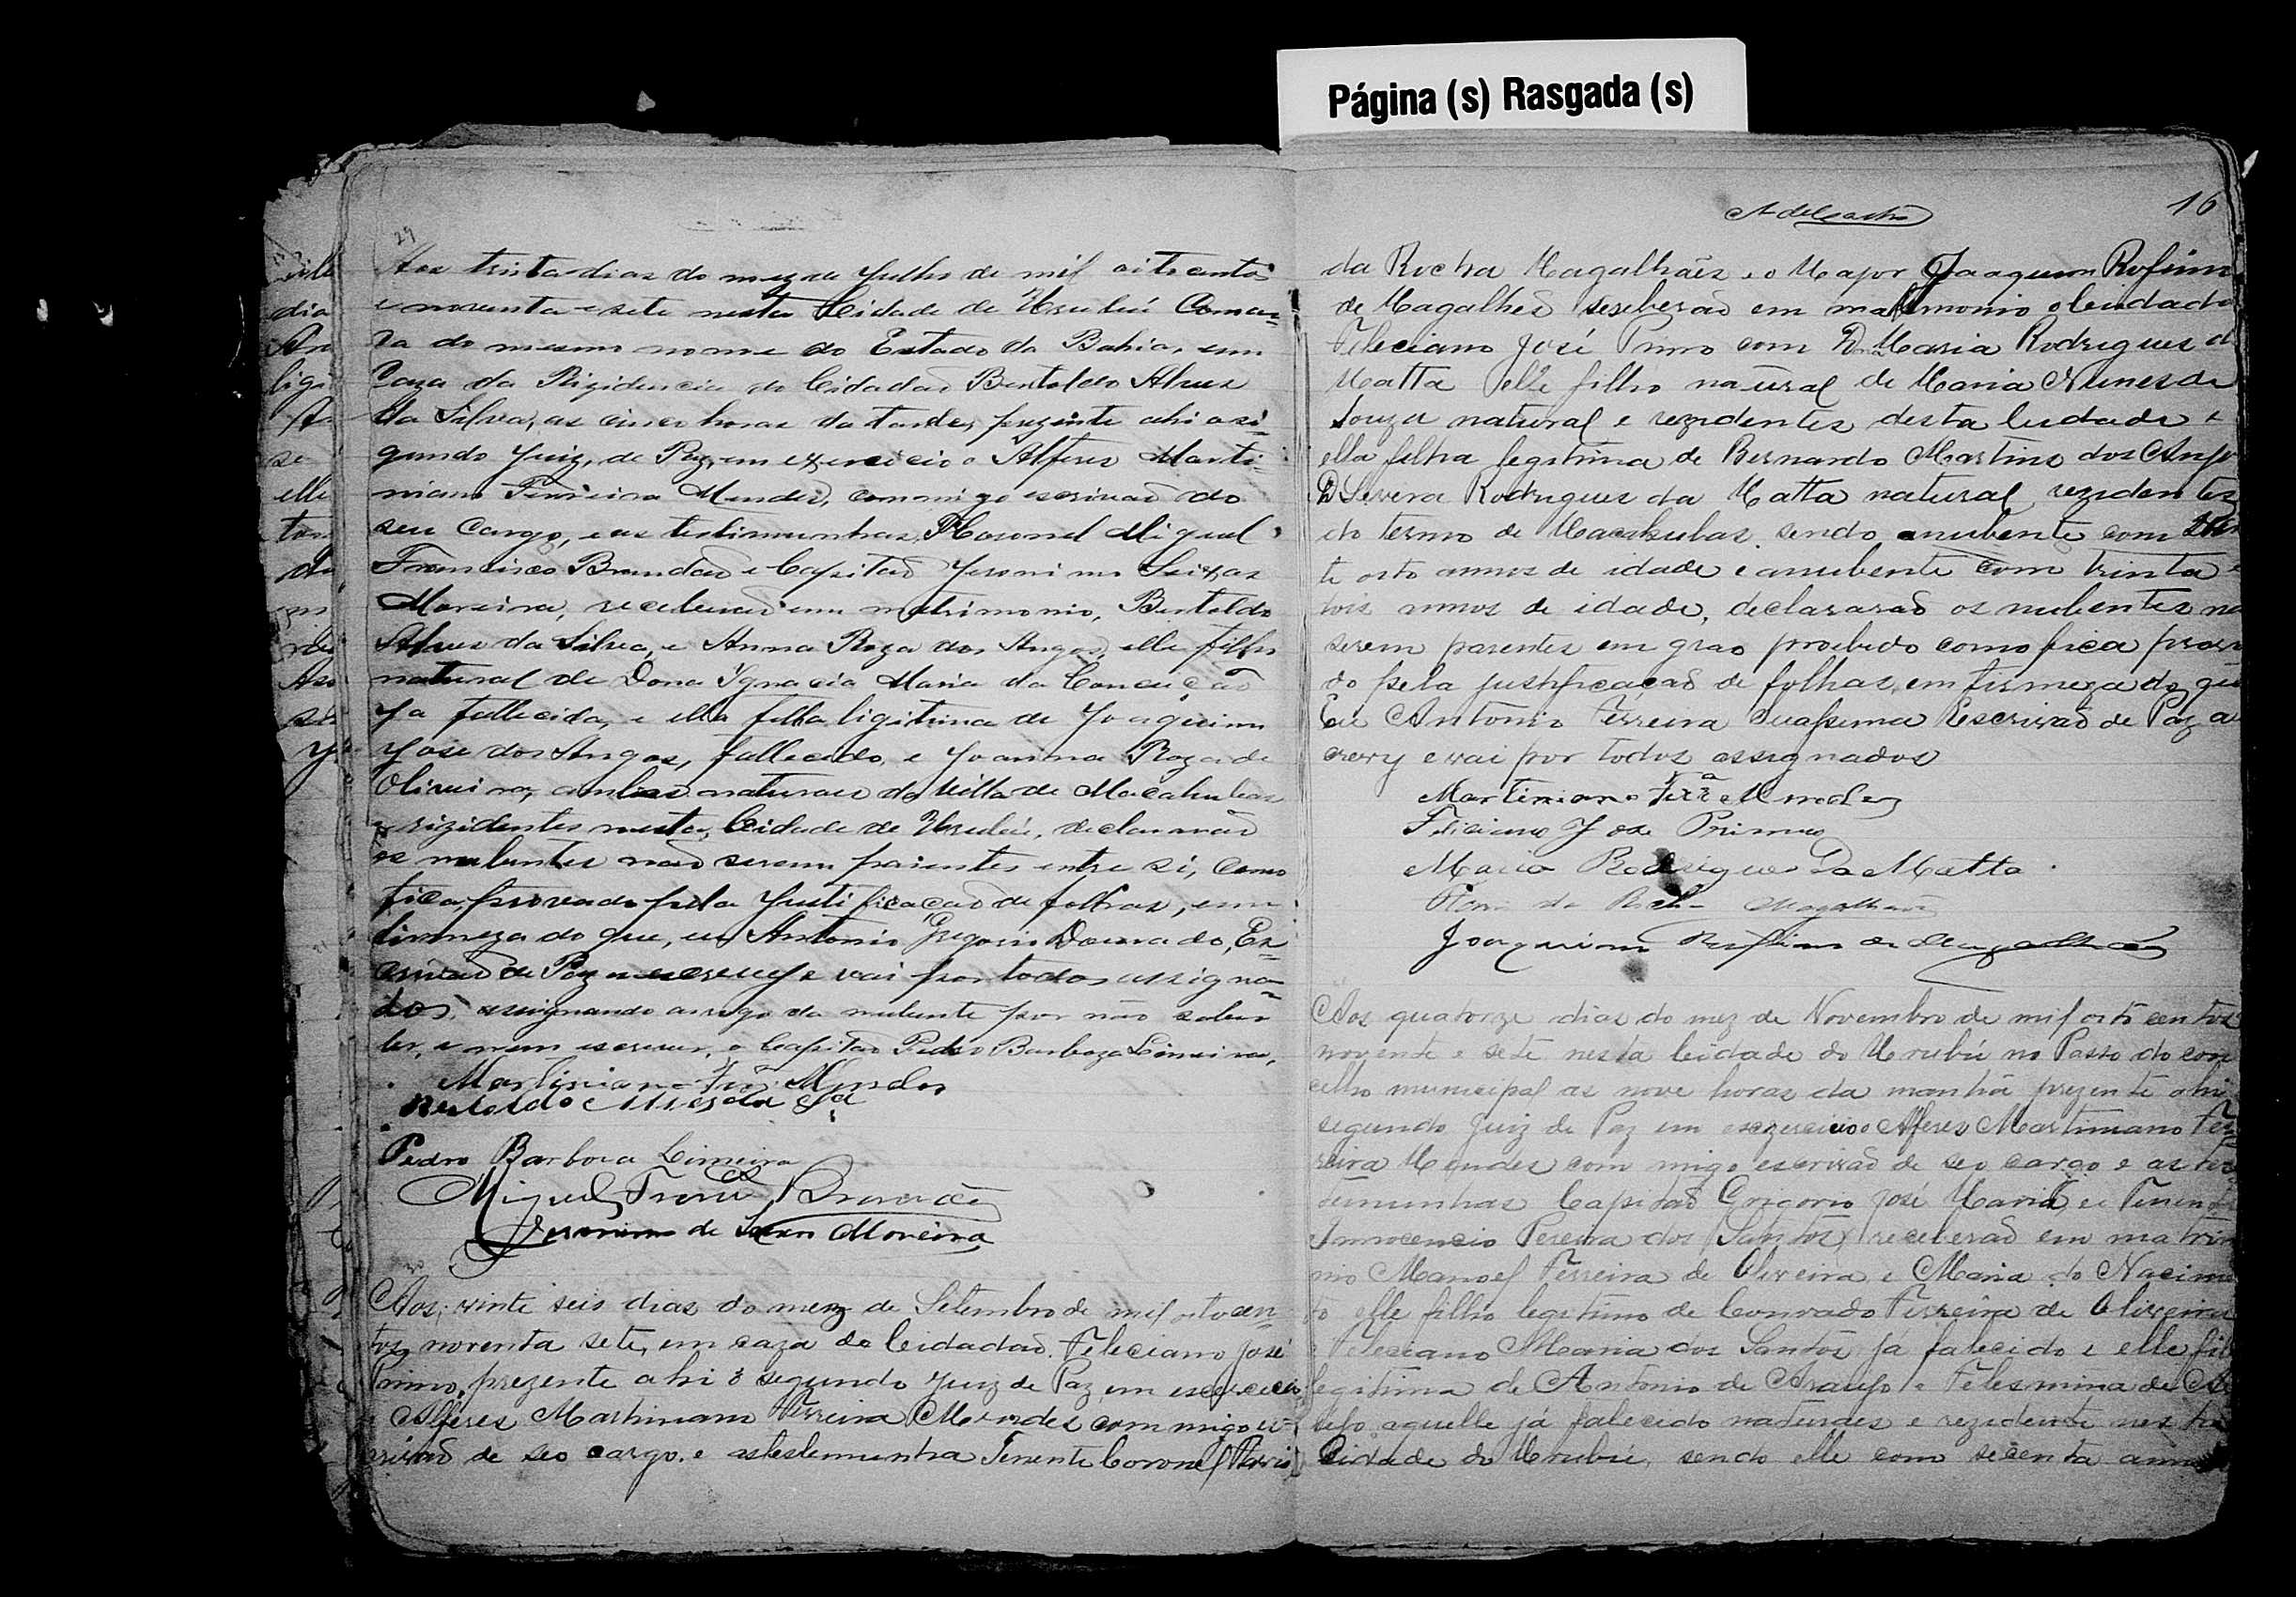 Página (s) Rasgada (s)
29
Aos trinta dias do mez de Julho de mil oitocentos
e noventa e sete nesta Cidade de Urubú Comar=
ca do mesmo nome do Estado da Bahia, em
Caza da Rizidencia do Cidadaõ Bertoldo Alves
da Silva, as cinco horas da tarde, prezente ahi o si=
gundo Juiz, de Paz, em exercicio o Alferes Marti=
niano Ferreira Mendes, commigo escrivaõ do
seu Cargo, e as testimunhas, Coronel Miguel
Francisco Brandaõ e Capitaõ Jeronimo
Moreira, receberaõ em matrimonio, Bertoldo
Alves da Silva, e Anna Roza dos Anjos, elle filho
natural de Dona Ignacia Maria da Conceiçaõ
ja fallecida, e ella filha ligitima de Joaquim
Jose dos Anjos, fallecido, e Joanna Roza de
Oliveira, ambos naturaes da Villa de Macahubas
e rizidentes nesta Cidade de Urubú, declararaõ
os nubentes naõ serem parentes entre si, como
fica provado pela Justificaçaõ de folhas, em
firmeza do que, eu Antonio Gregorio Dourado, Es=
crivaõ de Paz o escrevy e vai por todos assigna=
dos, assignando a rogo da nubente por não saber
ler, e nem escrever, o Capitaõ Pedro Barboza Limeira,
Martiniano Frª Mendes
Pedro Barbosa Limeira
Miguel Franco Brandaõ
Jeronimo de Moreira
30
Aos, vinte seis dias do mez de Setembro de mil oitocen=
tos noventa sete, em caza do Cidadaõ Feleciano José
Primo, prezente ahi o segundo Juiz de Paz em exercicio
Alferes Martiniano Ferreira Mendes commigo es=
crivaõ de seo cargo. e as testemunha Tenente Coronel
16
da Rocha Magalhães e o Major Joaquim Rofino
de Magalhes receberaõ em matrimonio o Cidadaõ
Feleciano José Primo com Dona Maria Rodrigues d
Matta elle filho natural de Maria Nunes de
Souza natural e rezidentes desta Cidade e
ella filha legitima de Bernardo Martins dos Anjo
D Severa Rodrigues da Matta natural rezidentes
do termo de Macahubas. sendo o nubente com
te oito annos de idade e a nubente com trinta e
dois annos de idade, declararaõ os nubentes na
serem parentes em grao proebido como fica prova
do pela justificaçaõ de folhas, em firmeza do que
Eu Antonio Ferreira Escrivaõ de Paz o es
crevy e vai por todos assignados
Martiniano Ferrª Mendes
Feliciano Jose Primo
Maria Rodrigues da Matta.
da Rocha Magalhães
Joaquim Ruffino de Magalhães
Aos quatorze dias do mez de Novembro de mil oito centos
novente e sete nesta Cidade do Urubú no Passo do con
celho municipal as nove horas da manhã prezente ahi
segundo Juiz de Paz em exzercicio o Alferes Martiniano Fer
reira Mendes com migo escrivaõ de seo cargo e as tes
temunhas Capitaõ Grigorio José Maria, e Tenen
Innocencio Pereira dos Santos receberaõ em matrim
nio Manoel Ferreira de Oliveira e Maria do Nacimen
to elle filho legitimo de Conrado Ferreira de Oliveira
e Feleciano Maria dos Santos já falecido e ella fil
legitima de Antonio de Araujo e Felesmina de Ar
aquelle já falecido naturaes e rezidente nesta
Cidade do Urubú, sendo elle com secenta annos